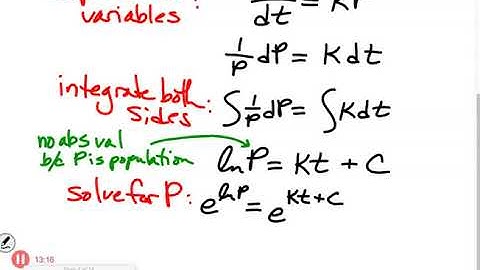 variables
dt = KP
1/P dP = K dt
integrate both sides: ∫ 1/P dP = ∫ K dt
no abs val
b/c P is population
ln P = Kt + C
solve for P: e^lnP = e^Kt+C
13:16